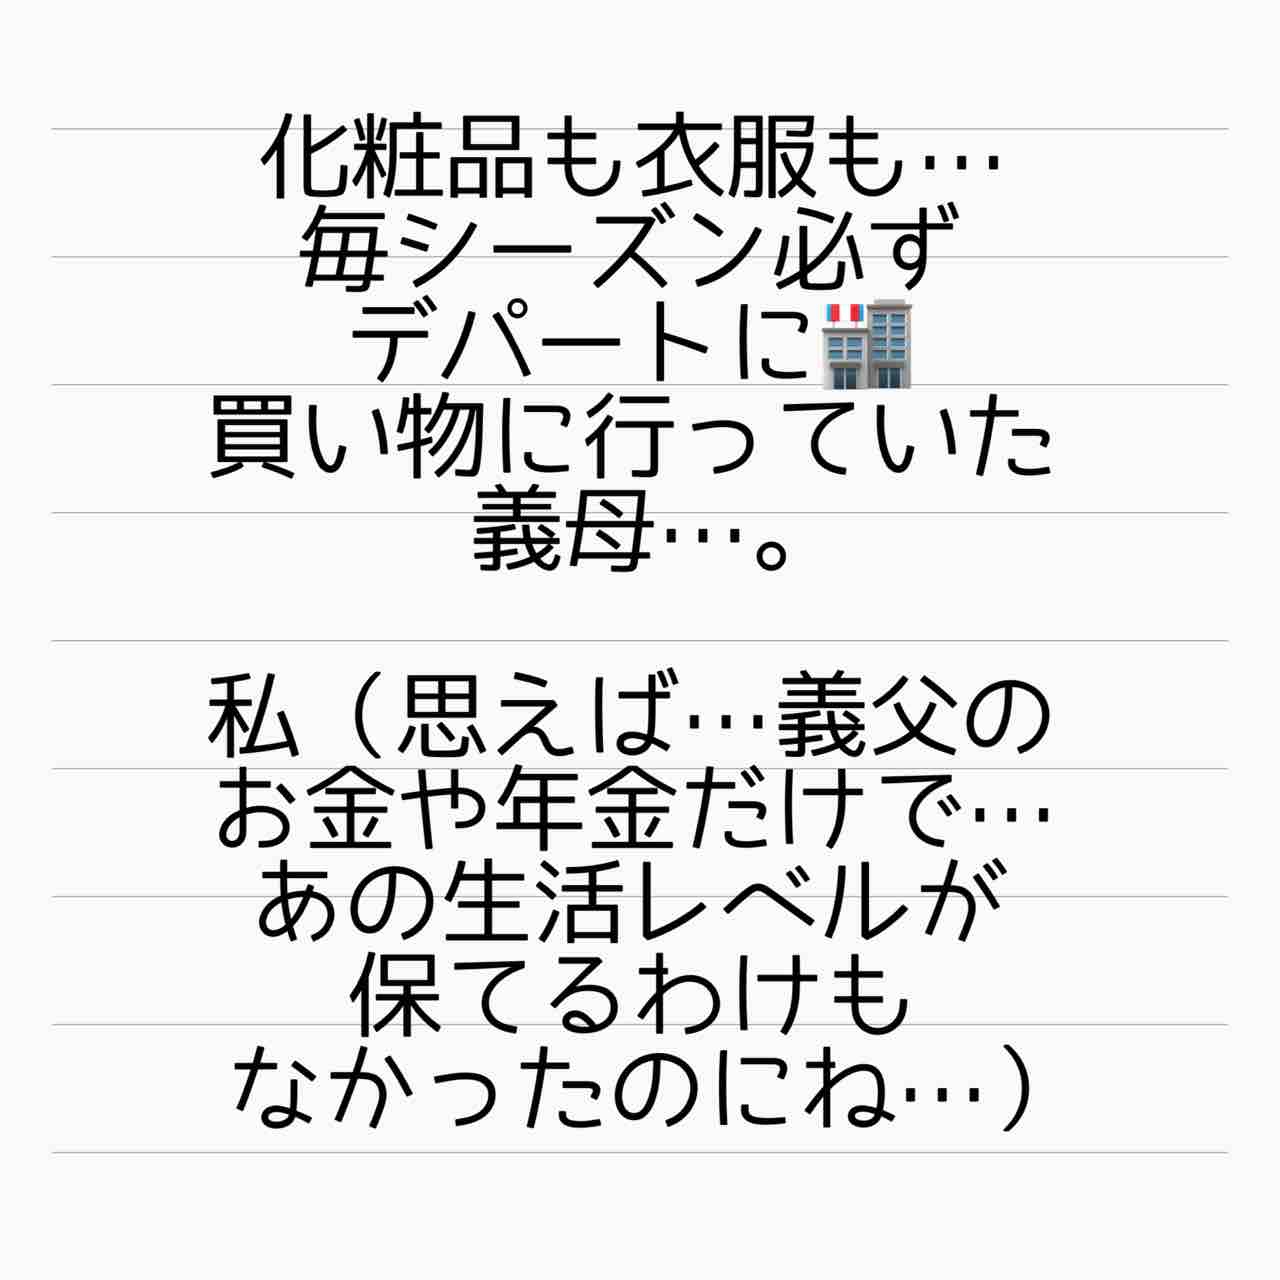 化粧品も衣服も…
毎シーズン必ず
デパートに🏬
買い物に行っていた
義母…。
私（思えば…義父の
お金や年金だけで…
あの生活レベルが
保てるわけも
なかったのにね…）